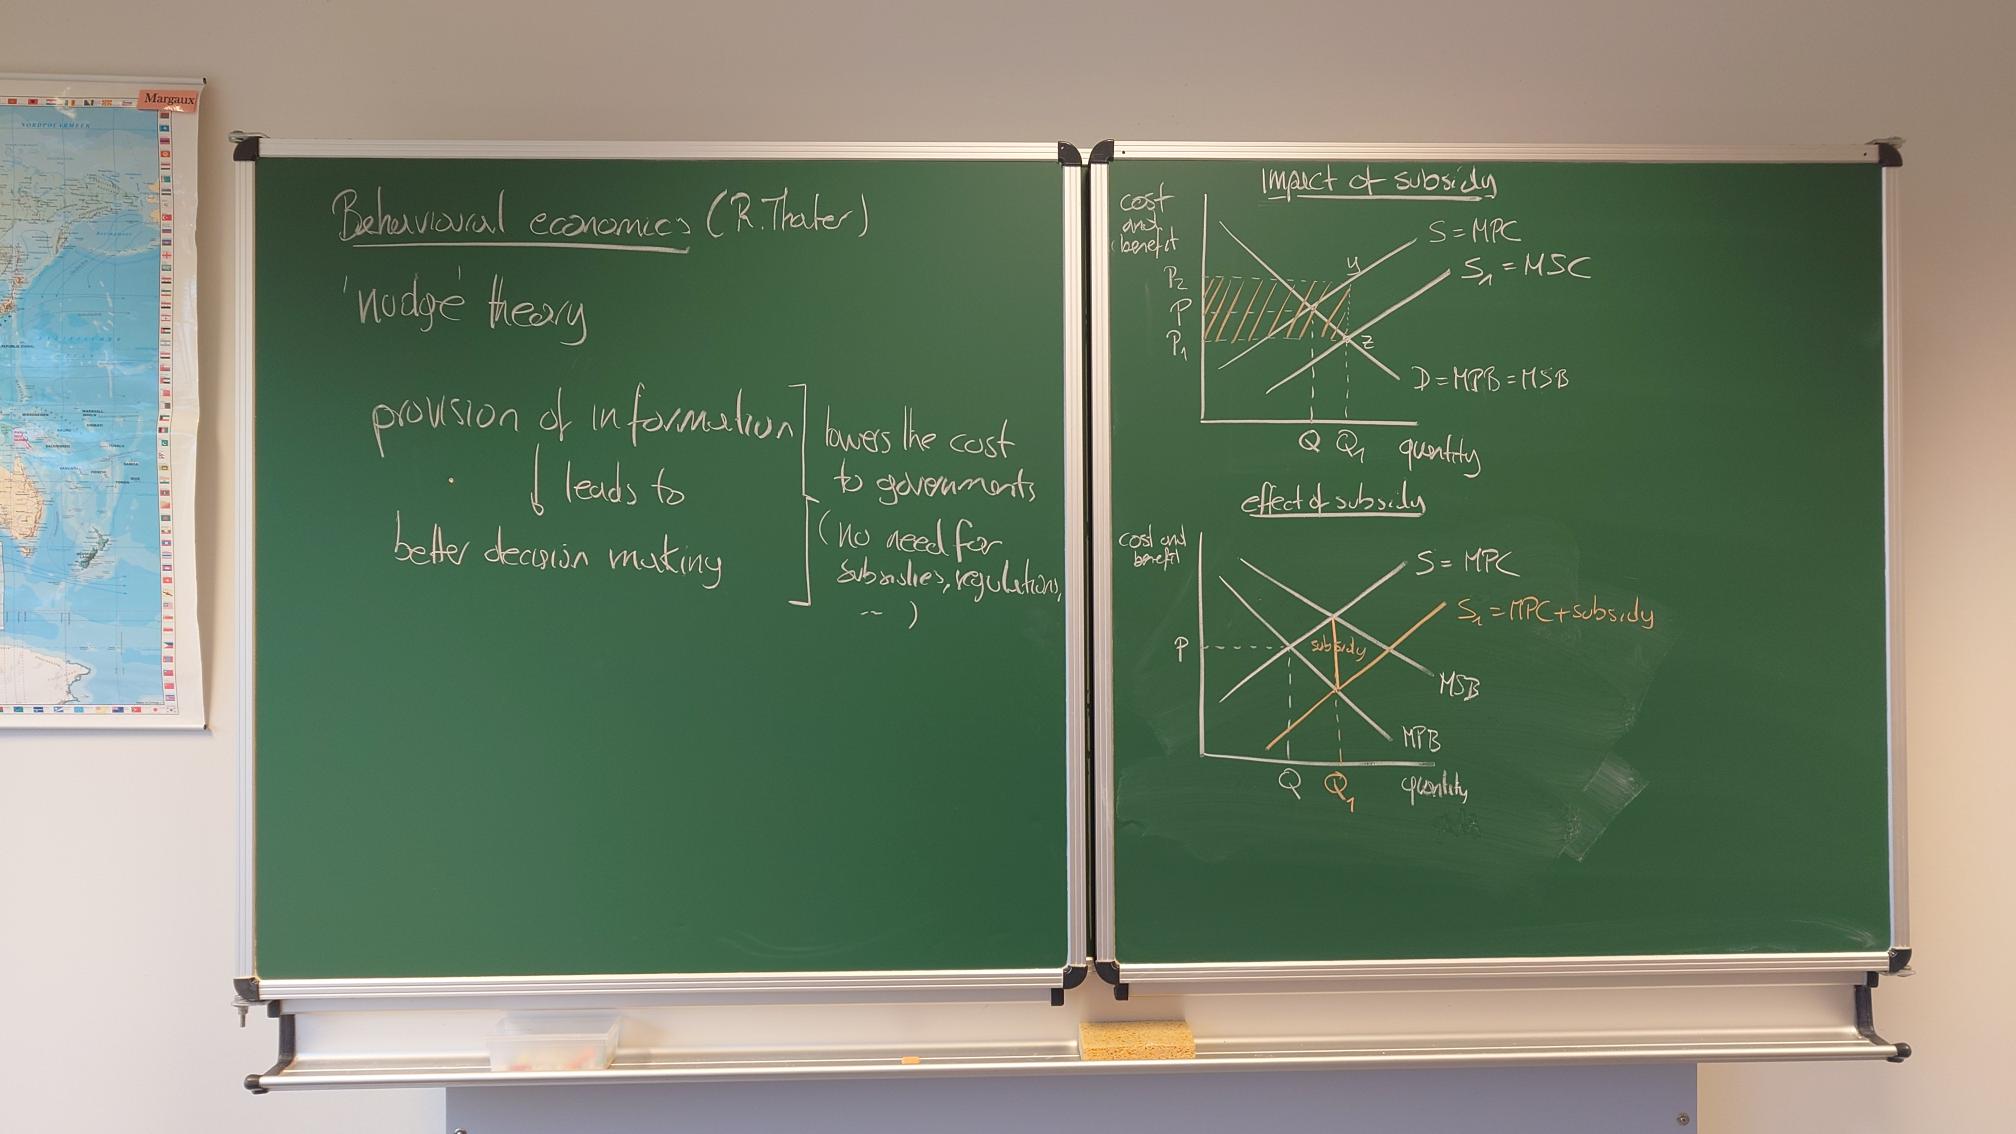 Margaux
NORDPOLARMEER
Behavioural economics (R.Thaler)
'nudge' theory
provision of information
leads to
better decision making
lowers the cost
to governments
(no need for
subsidies, regulations,
... )
Impact of subsidy
cost
and
benefit
P2
P
P1
S = MPC
S1 = MSC
y
z
D = MPB = MSB
Q Q1 quantity
effect of subsidy
cost and
benefit
S = MPC
S1 = MPC + subsidy
P
subsidy
MSB
MPB
Q Q1 quantity